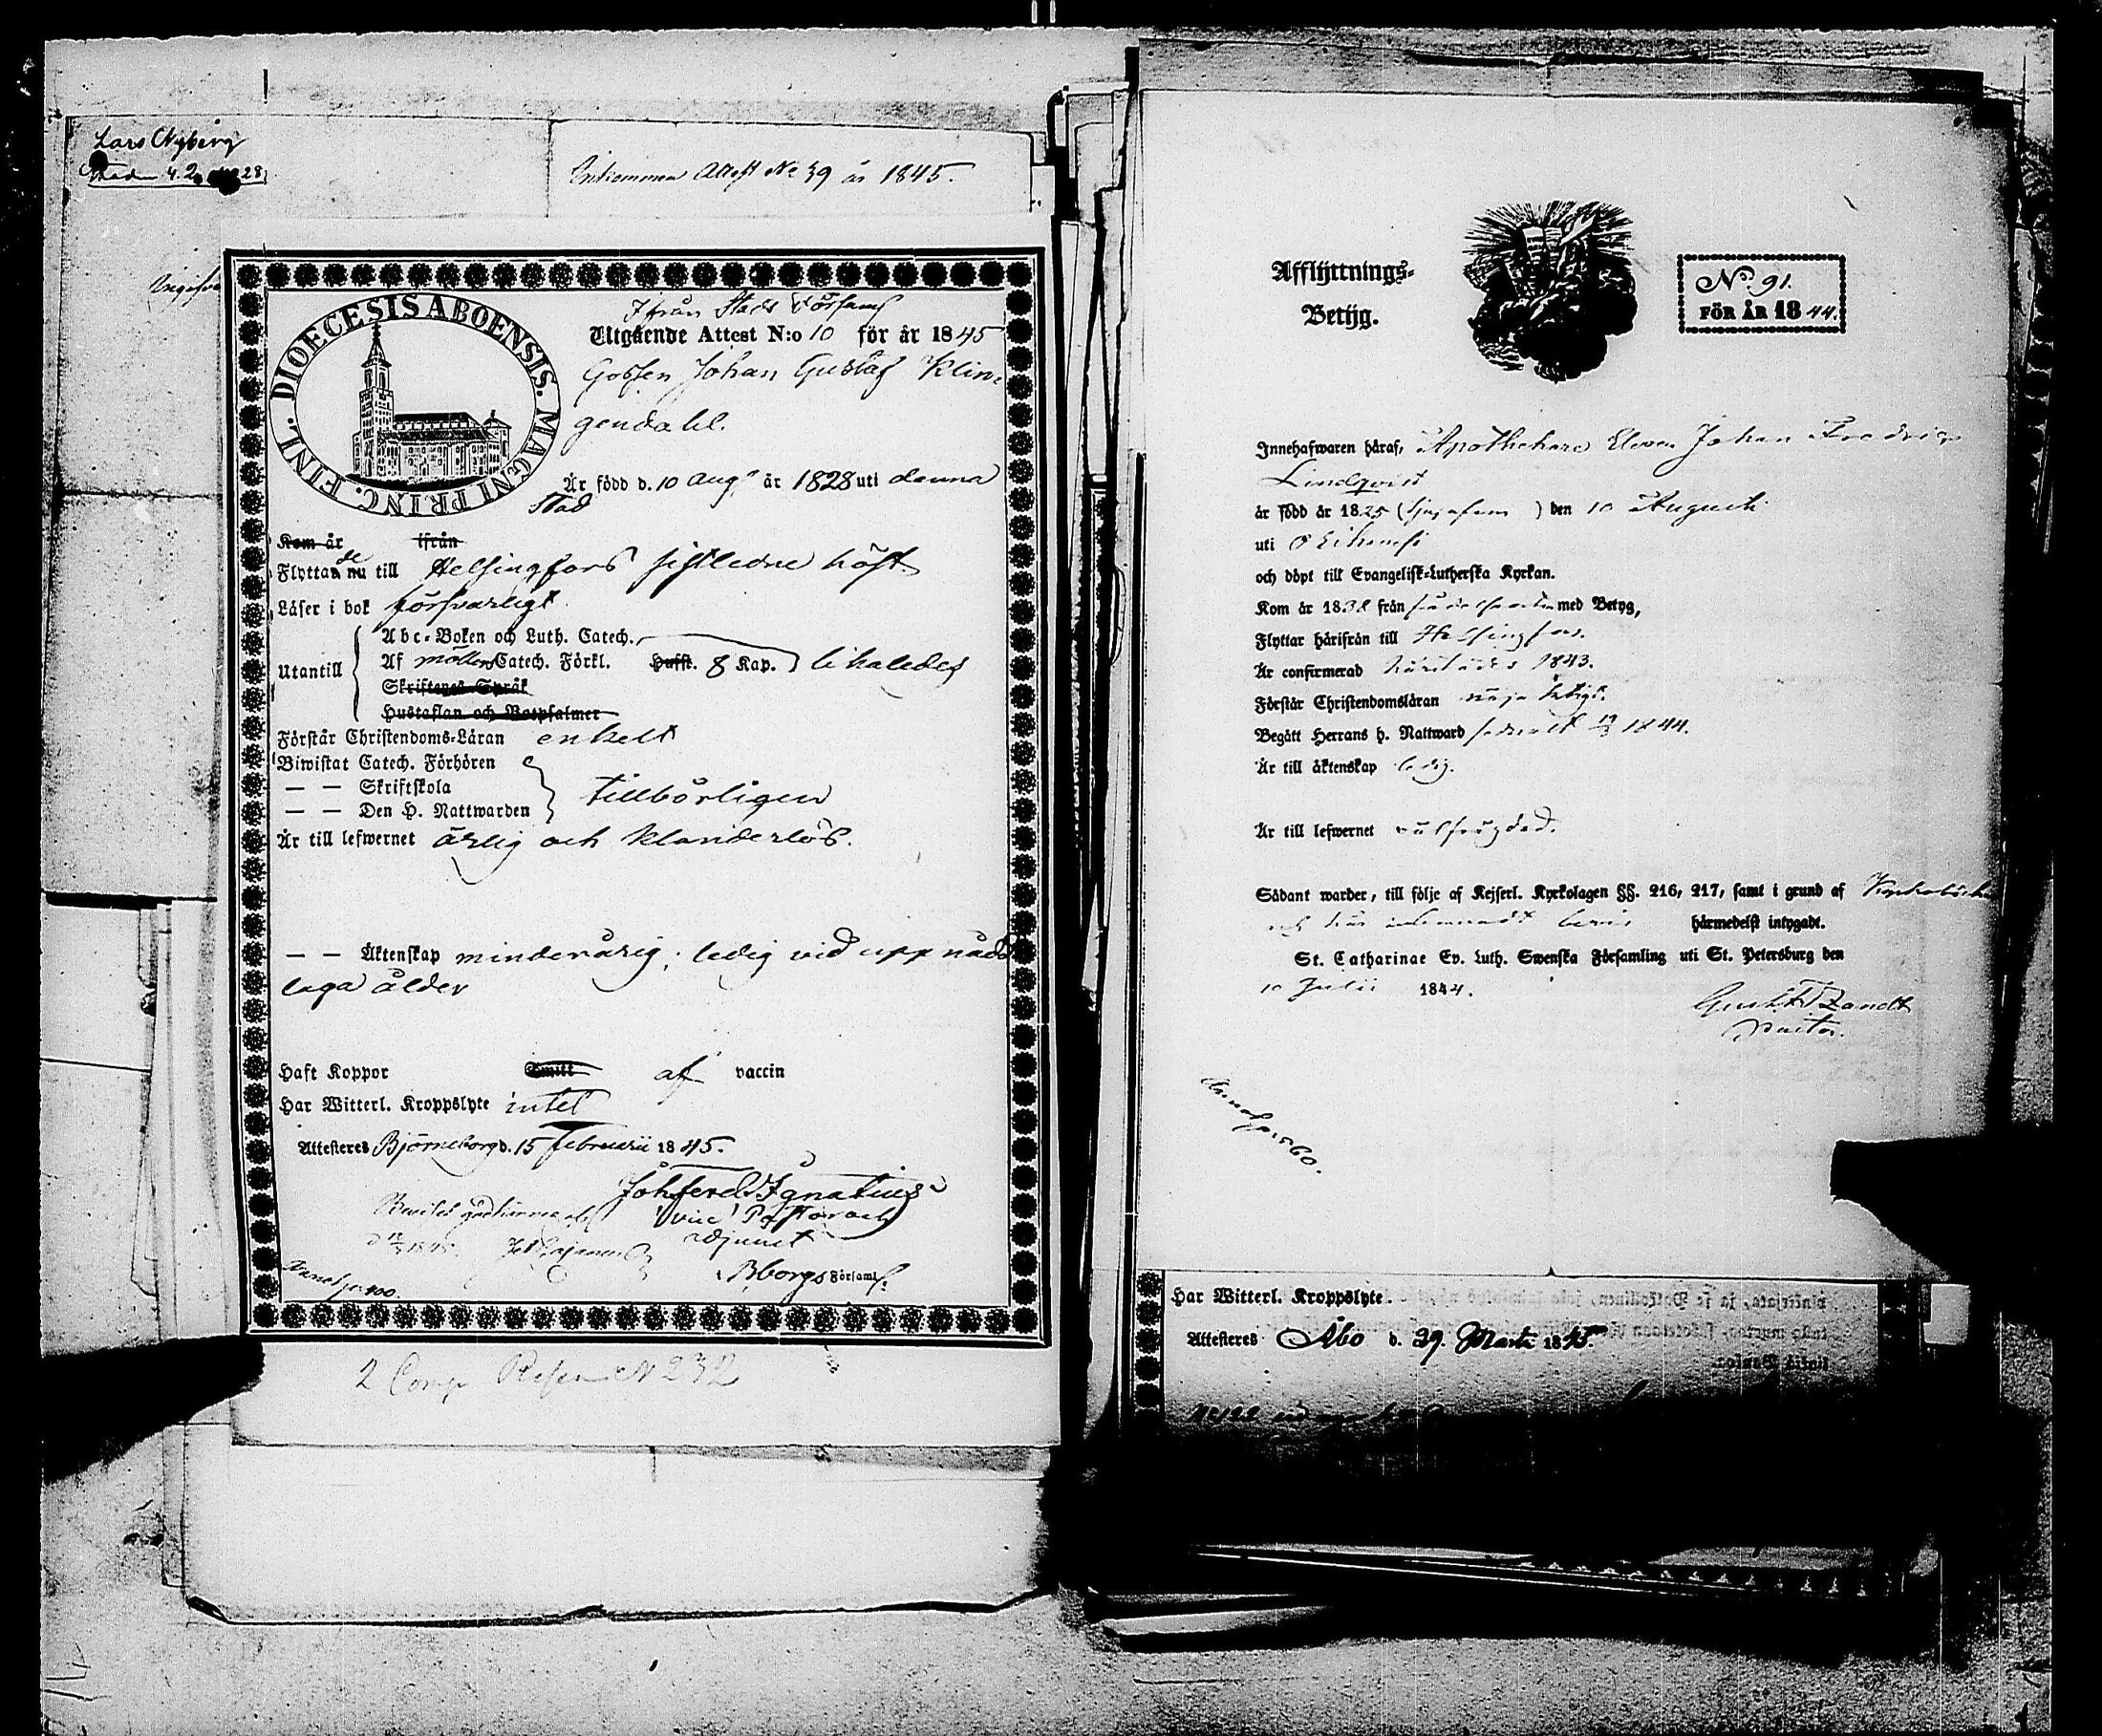 Lars Nyberg
Inkommen Attest No 39 år 1845.
DIOECESIS ABOENSIS. MAGNI PRINC. FINL.
Ifrån Stads Församl
Utgående Attest N:o 10 för år 1845
Gossen Johan Gustaf Klin-
gendahl.
Är född d. 10 Aug. år 1828 uti denna
Stad
Kom år ifrån
Flyttade nu till Helsingfors sistledne höst
Läser i bok försvarligt
Utantill
Abc-Boken och Luth. Catech.
Af möllers Catech. Förkl. Hufst. 8 Kap. likaledes
Skriftenes Språk
Hustaflan och Botpsalmer
Förstår Christendoms-Läran enkelt
Biwistat Catech. Förhören
— — Skriftskola
— — Den H. Nattwarden
tillbörligen
Är till lefwernet ärlig och klanderlös.
— — Äktenskap minderårig; ledig vid uppnådd
laga ålder
Haft Koppor af vaccin
Har Witterl. Kroppslyte intet
Attesteres Björneborg d. 15 Februarii 1845.
Joh Ferd Ignatius
vice Pastor och
Adjunct
Bborgs Församl.
2 Comp N 232
Afflyttnings-
Betyg.
No. 91.
FÖR ÅR 1844.
Innehafwaren häraf, Apothekare Eleven Johan Fredric
Lindqvist
är född år 1825 (tjugufem) den 10 Augusti
uti
och döpt till Evangelisk-Lutherska Kyrkan.
Kom år 1838 från födelseorten med Betyg,
Flyttar härifrån till Helsingfors.
Är confirmerad härstädes 1843.
Förstår Christendomsläran nöjaktigt.
Begått Herrans h. Nattward sednast 1844.
Är till äktenskap ledig.
Är till lefwernet välfrägdad.
Sådant warder, till följe af Kejserl. Kyrkolagen §§. 216, 217, samt i grund af Kyrkoböcker
och här härmedelst intygadt.
St. Catharinae Ev. Luth. Swenska Församling uti St. Petersburg den
10 Julii 1844.
Gust. Fr. Zandt
Pastor.
Har Witterl. Kroppslyte.
Attesteres Åbo d. 29. Martii 1845.